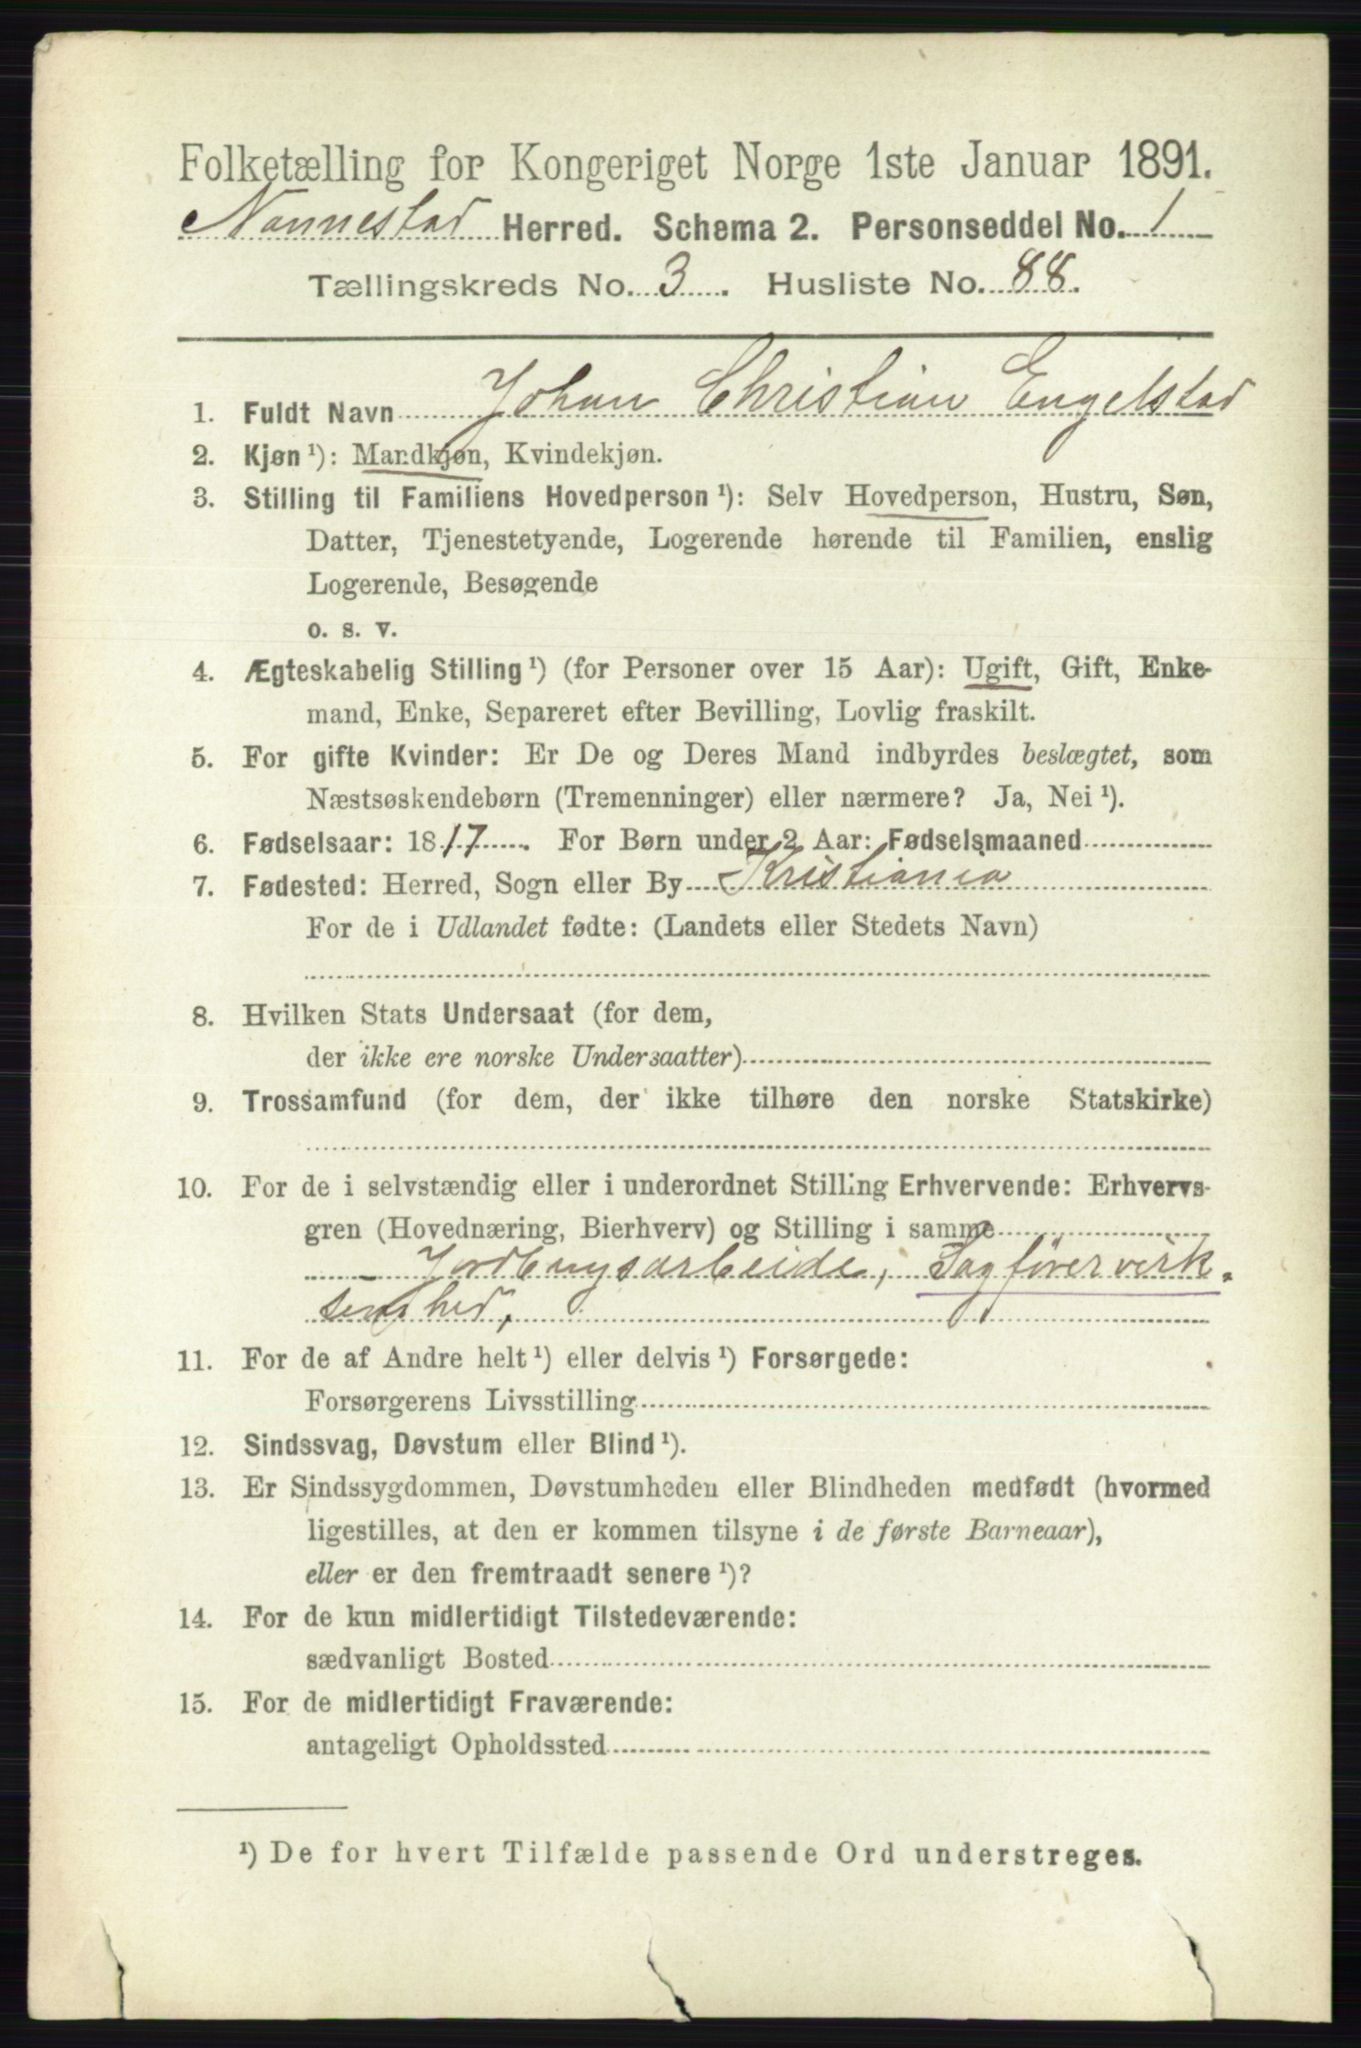 Folketælling for Kongeriget Norge 1ste Januar 1891.
Nannestad Herred. Schema 2. Personseddel No. 1
Tællingskreds No. 3. Husliste No. 88.
1. Fuldt Navn Johan Christian Engelstad
2. Kjøn¹): Mandkjøn, Kvindekjøn.
3. Stilling til Familiens Hovedperson¹): Selv Hovedperson, Hustru, Søn,
Datter, Tjenestetyende, Logerende hørende til Familien, enslig
Logerende, Besøgende
o. s. v.
4. Ægteskabelig Stilling¹) (for Personer over 15 Aar): Ugift, Gift, Enke-
mand, Enke, Separeret efter Bevilling, Lovlig fraskilt.
5. For gifte Kvinder: Er De og Deres Mand indbyrdes beslægtet, som
Næstsøskendebørn (Tremenninger) eller nærmere? Ja, Nei¹).
6. Fødselsaar: 1817. For Børn under 2 Aar: Fødselsmaaned
7. Fødested: Herred, Sogn eller By Kristiania
For de i Udlandet fødte: (Landets eller Stedets Navn)
8. Hvilken Stats Undersaat (for dem,
der ikke ere norske Undersaatter)
9. Trossamfund (for dem, der ikke tilhøre den norske Statskirke)
10. For de i selvstændig eller i underordnet Stilling Erhvervende: Erhvervs-
gren (Hovednæring, Bierhverv) og Stilling i samme
Jordbrugsarbeide, Sagførervirk-
somhed,
11. For de af Andre helt¹) eller delvis¹) Forsørgede:
Forsørgerens Livsstilling
12. Sindssvag, Døvstum eller Blind¹).
13. Er Sindssygdommen, Døvstumheden eller Blindheden medfødt (hvormed
ligestilles, at den er kommen tilsyne i de første Barneaar),
eller er den fremtraadt senere¹)?
14. For de kun midlertidigt Tilstedeværende:
sædvanligt Bosted
15. For de midlertidigt Fraværende:
antageligt Opholdssted
¹) De for hvert Tilfælde passende Ord understreges.